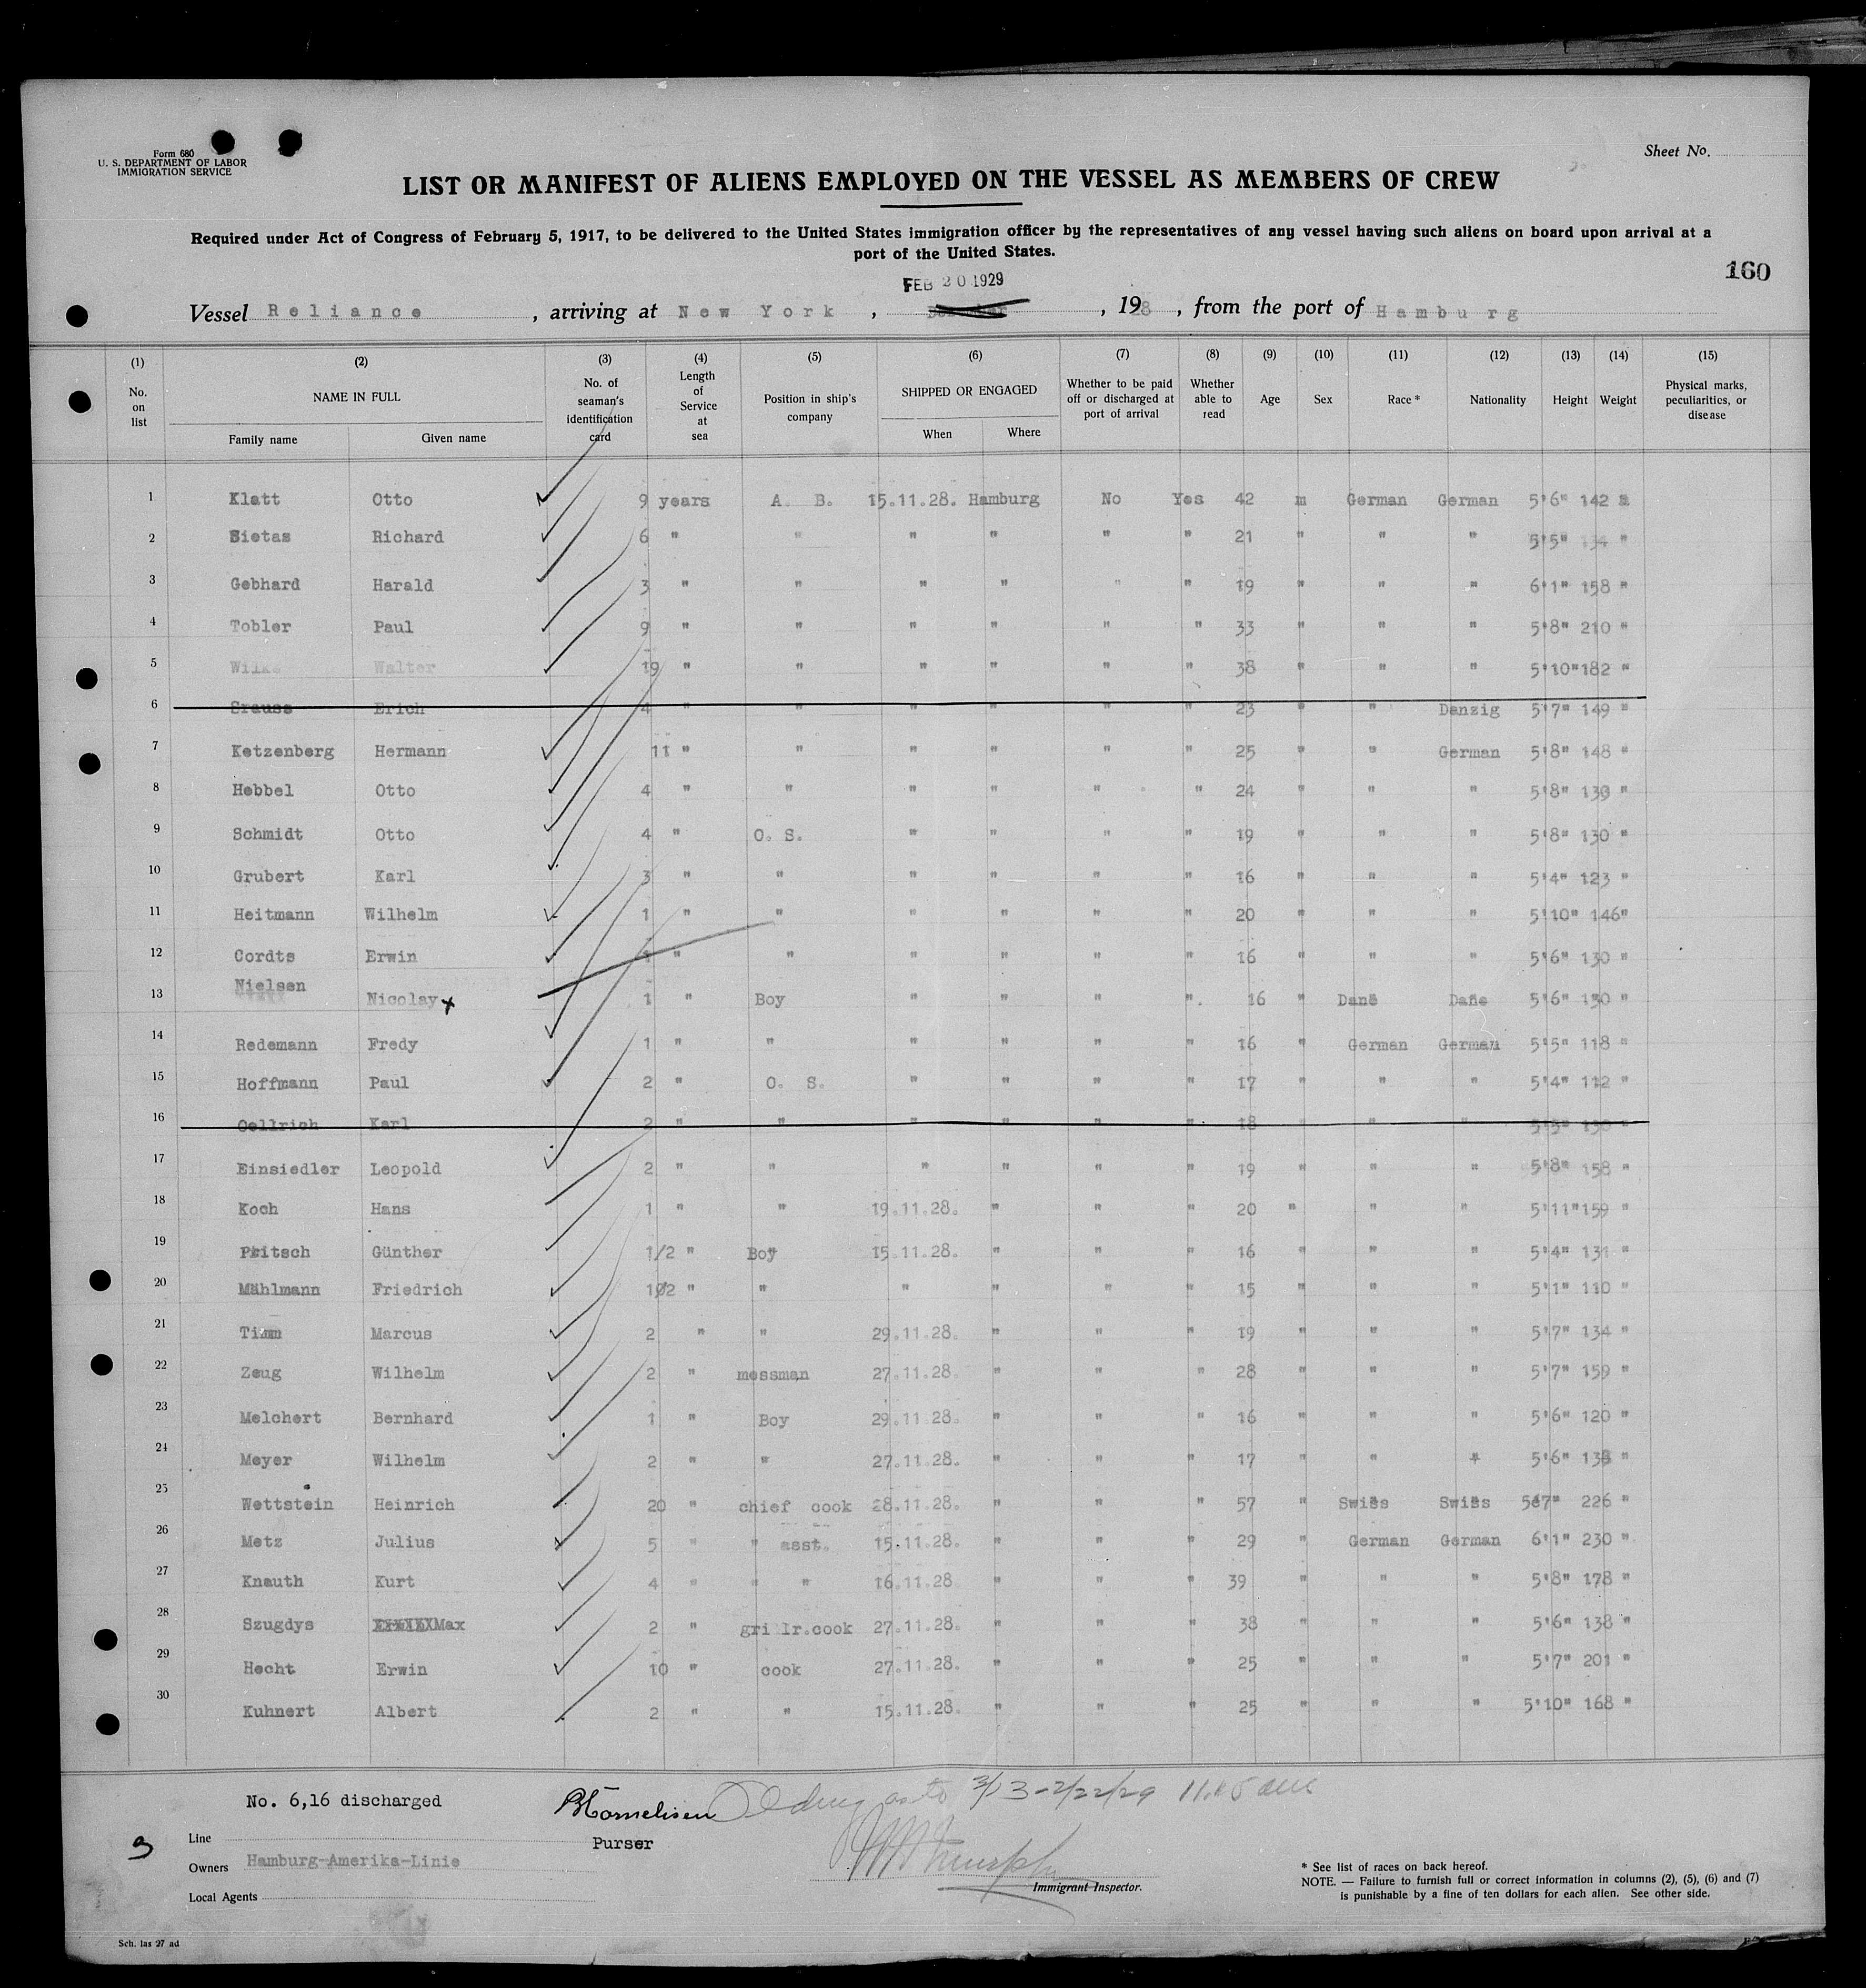 Form 680
U. S. DEPARTMENT OF LABOR
IMMIGRATION SERVICE
Sheet No.
LIST OR MANIFEST OF ALIENS EMPLOYED ON THE VESSEL AS MEMBERS OF CREW
Required under Act of Congress of February 5, 1917, to be delivered to the United States immigration officer by the representatives of any vessel having such aliens on board upon arrival at a
port of the United States.
160
FEB 20 1929
Vessel Reliance, arriving at New York, , 1928, from the port of Hamburg
(1) (2) (3) (4) (5) (6) (7) (8) (9) (10) (11) (12) (13) (14) (15)
No. on list NAME IN FULL No. of seaman's identification card Length of Service at sea Position in ship's company SHIPPED OR ENGAGED Whether to be paid off or discharged at port of arrival Whether able to read Age Sex Race * Nationality Height Weight Physical marks, peculiarities, or disease
Family name Given name When Where
1 Klatt Otto 9 years A. B. 15.11.28. Hamburg No Yes 42 m German German 5'6" 142
2 Sietas Richard 6 " " " " " " 21 " " " 5'5" 134 "
3 Gebhard Harald 3 " " " " " " 19 " " " 6'1" 158 "
4 Tobler Paul 9 " " " " " " 33 " " " 5'8" 210 "
5 Wilke Walter 19 " " " " " " 38 " " " 5'10" 182 "
6 Srauss Erich 4 " " " " " " 23 " " Danzig 5'7" 149 "
7 Ketzenberg Hermann 11 " " " " " " 25 " " German 5'8" 148 "
8 Hebbel Otto 4 " " " " " " 24 " " " 5'8" 139 "
9 Schmidt Otto 4 " O. S. " " " " 19 " " " 5'8" 130 "
10 Grubert Karl 3 " " " " " " 16 " " " 5'4" 123 "
11 Heitmann Wilhelm 1 " " " " " " 20 " " " 5'10" 146"
12 Cordts Erwin 1 " " " " " " 16 " " " 5'6" 130 "
13 Nielsen Nicolay x 1 " Boy " " " " 16 " Dane Dane 5'6" 130 "
14 Redemann Fredy 1 " " " " " " 16 " German German 5'5" 118 "
15 Hoffmann Paul 2 " O. S. " " " " 17 " " " 5'4" 112 "
16 Oellrich Karl 2 " " " " " " 18 " " " 5'5" "
17 Einsiedler Leopold 2 " " " " " " 19 " " " 5'8" 158 "
18 Koch Hans 1 " " 19.11.28. " " " 20 " " " 5'11" 159 "
19 Pritsch Günther 1/2 " Boy 15.11.28. " " " 16 " " " 5'4" 131 "
20 Mählmann Friedrich 1/2 " " " " " " 15 " " " 5'1" 110 "
21 Timm Marcus 2 " " 29.11.28. " " " 19 " " " 5'7" 134 "
22 Zeug Wilhelm 2 " messman 27.11.28. " " " 28 " " " 5'7" 159 "
23 Melchert Bernhard 1 " Boy 29.11.28. " " " 16 " " " 5'6" 120 "
24 Meyer Wilhelm 2 " " 27.11.28. " " " 17 " " " 5'6" 138 "
25 Wettstein Heinrich 20 " chief cook 28.11.28. " " " 57 " Swiss Swiss 5'7" 226 "
26 Metz Julius 5 " " asst. 15.11.28. " " " 29 " German German 6'1" 230 "
27 Knauth Kurt 4 " " " 16.11.28 " " " 39 " " " 5'8" 178 "
28 Szugdys Max 2 " gri lr.cook 27.11.28. " " " 38 " " " 5'6" 138 "
29 Hecht Erwin 10 " cook 27.11.28. " " " 25 " " " 5'7" 201 "
30 Kuhnert Albert 2 " " 15.11.28. " " " 25 " " " 5'10" 168 "
No. 6,16 discharged
Purser
3
Line
Owners Hamburg-Amerika-Linie
Local Agents
2/22/29
Immigrant Inspector.
* See list of races on back hereof.
NOTE. — Failure to furnish full or correct information in columns (2), (5), (6) and (7)
is punishable by a fine of ten dollars for each alien. See other side.
Sch. las 27 ad